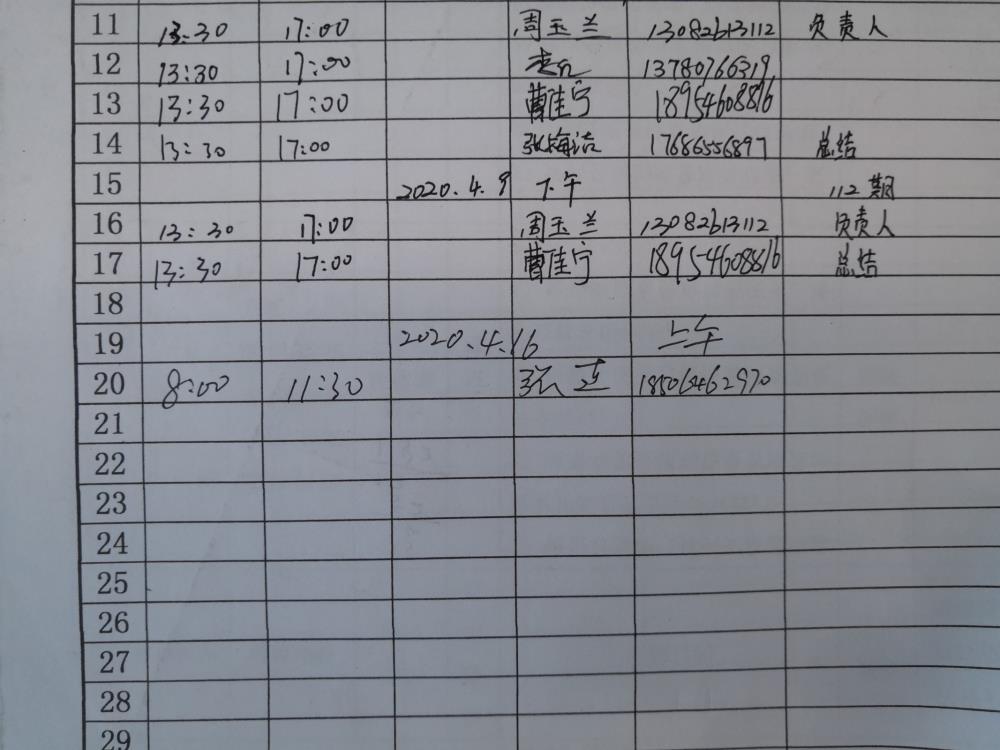 11 13:30 17:00 周玉兰 13082613112 负责人
12 13:30 17:00 13780766319
13 13:30 17:00 曹佳宁 18954608816
14 13:30 17:00 张梅洁 17686556897 总结
15 2020.4.9 下午 112期
16 13:30 17:00 周玉兰 13082613112 负责人
17 13:30 17:00 曹佳宁 18954608816 总结
18
19 2020.4.16 上午
20 8:00 11:30 张莲 18506462970
21
22
23
24
25
26
27
28
29